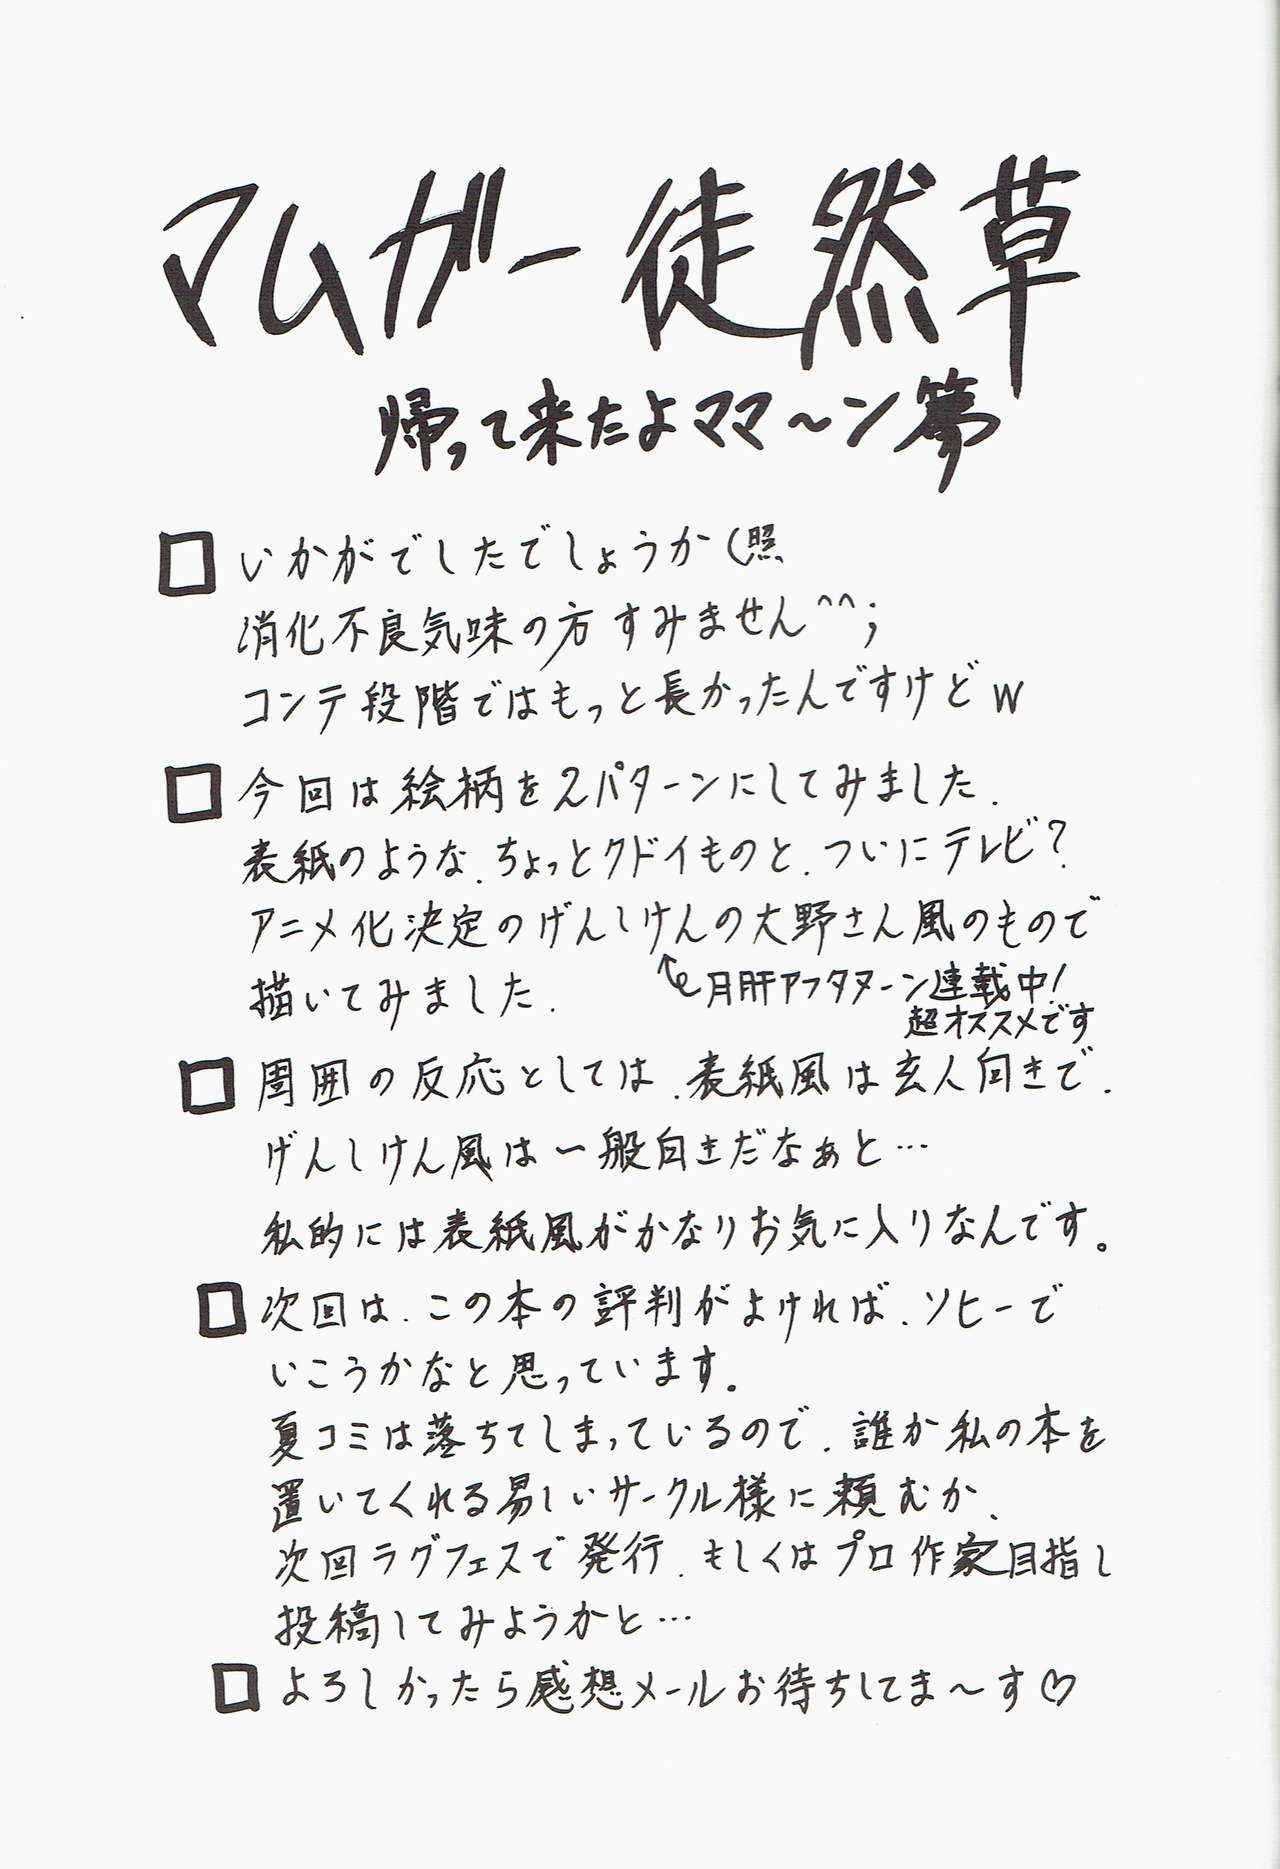 マムガー徒然草
帰って来たよママ〜ン篇
□いかがでしたでしょうか(照
消化不良気味の方すみません^^;
コンテ段階ではもっと長かったんですけどw
□今回は絵柄を2パターンにしてみました.
表紙のような.ちょっとクドイものと.ついにテレビ?
アニメ化決定のげんしけんの大野さん風のもので
描いてみました.
月肝アフタヌーン連載中!
超オススメです
□周囲の反応としては.表紙風は玄人向きで.
げんしけん風は一般向きだなぁと…
私的には表紙風がかなりお気に入りなんです。
□次回は.この本の評判がよければ.ソヒーで
いこうかなと思っています。
夏コミは落ちてしまっているので.誰か私の本を
置いてくれる易しいサークル様に頼むか、
次回ラグフェスで発行.もしくはプロ作家目指し
投稿してみようかと…
□よろしかったら感想メールお待ちしてま〜す♡